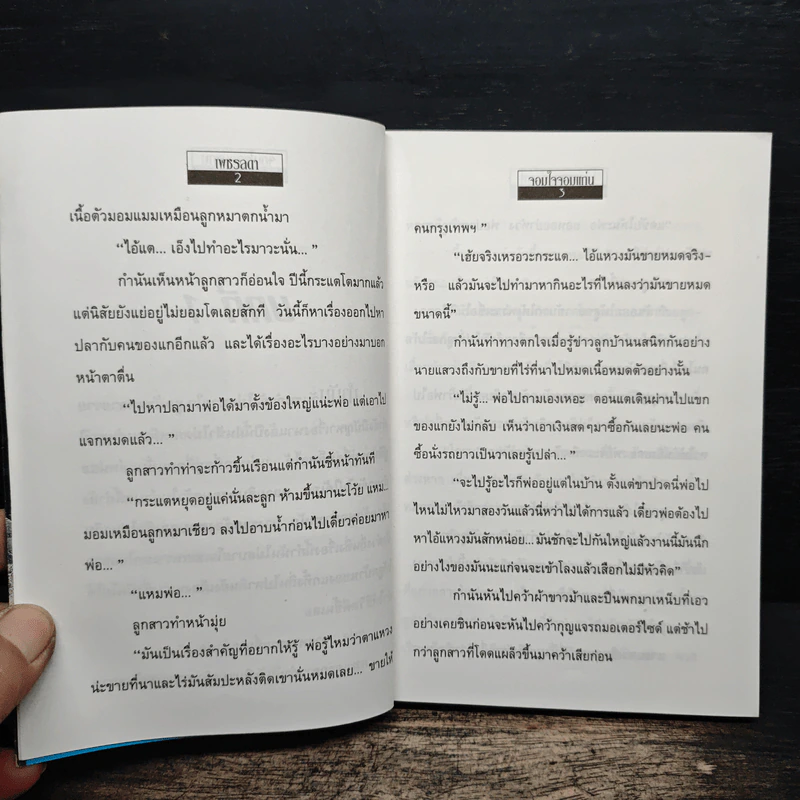 เพชรลดา
2
เนื้อตัวมอมแมมเหมือนลูกหมาตกน้ำมา
“ไอ้แต... เอ็งไปทำอะไรมาวะนั่น... ”
กำนันเห็นหน้าลูกสาวก็อ่อนใจ ปีนี้กระแตโตมากแล้ว
แต่นิสัยยังแย่อยู่ไม่ยอมโตเลยสักที วันนี้ก็หาเรื่องออกไปหา
ปลากับคนของแกอีกแล้ว และได้เรื่องอะไรบางอย่างมาบอก
หน้าตาตื่น
“ไปหาปลามาพ่อได้มาตั้งข้องใหญ่แน่ะพ่อ แต่เอาไป
แจกหมดแล้ว... ”
ลูกสาวทำท่าจะก้าวขึ้นเรือนแต่กำนันชี้หน้าทันที
“กระแตหยุดอยู่แค่นั่นละลูก ห้ามขึ้นมานะโว้ย แหม...
มอมเหมือนลูกหมาเชียว ลงไปอาบน้ำก่อนไปเดี๋ยวค่อยมาหา
พ่อ... ”
“แหมพ่อ... ”
ลูกสาวทำหน้ามุ่ย
“มันเป็นเรื่องสำคัญที่อยากให้รู้ พ่อรู้ไหมว่าตาแหวง
น่ะขายที่นาและไร่มันสัมปะหลังติดเขานั่นหมดเลย... ขายให้
จอมใจจอมแก่น
3
คนกรุงเทพฯ ”
“เฮ้ยจริงเหรอวะกระแต... ไอ้แหวงมันขายหมดจริง-
หรือ แล้วมันจะไปทำมาหากินอะไรที่ไหนลงว่ามันขายหมด
ขนาดนี้”
กำนันท่าทางตกใจเมื่อรู้ข่าวลูกบ้านนสนิทกันอย่าง
นายแสวงถึงกับขายที่ไร่ที่นาไปหมดเนื้อหมดตัวอย่างนั้น
“ไม่รู้... พ่อไปถามเองเหอะ ตอนแตเดินผ่านไปแขก
ของแกยังไม่กลับ เห็นว่าเอาเงินสดๆมาซื้อกันเลยนะพ่อ คน
ซื้อนั่งรถยาวเป็นวาเลยรู้เปล่า... ”
“จะไปรู้อะไรก็พ่ออยู่แต่ในบ้าน ตั้งแต่ขาปวดนี่พ่อไป
ไหนไม่ไหวมาสองวันแล้วนี่หว่าไม่ได้การแล้ว เดี๋ยวพ่อต้องไป
หาไอ้แหวงมันสักหน่อย...มันชักจะไปกันใหญ่แล้วงานนี้มันนึก
อย่างไงของมันนะแก่จนจะเข้าโลงแล้วเสือกไม่มีหัวคิด”
กำนันหันไปคว้าผ้าขาวม้าและปืนพกมาเหน็บที่เอว
อย่างเคยชินก่อนจะหันไปคว้ากุญแจรถมอเตอร์ไซด์ แต่ช้าไป
กว่าลูกสาวที่โดดแผล็วขึ้นมาคว้าเสียก่อน